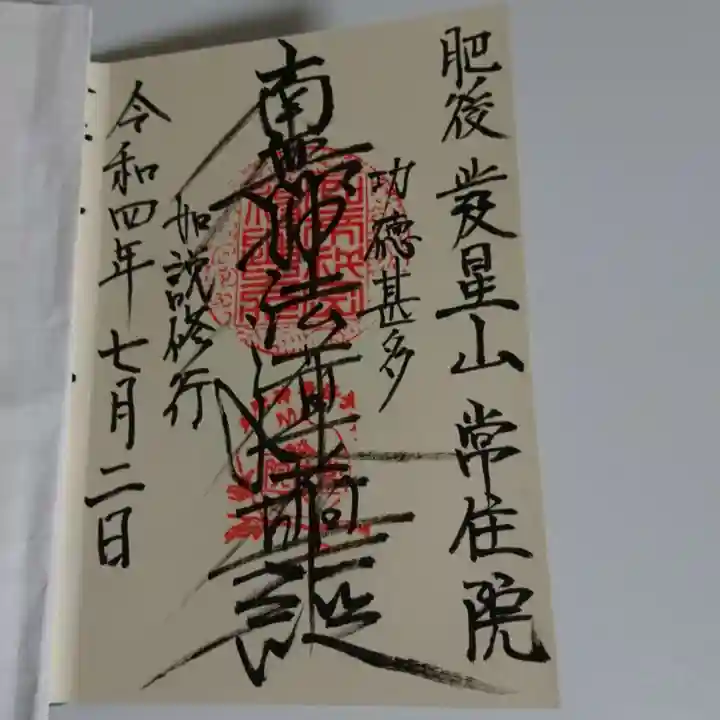 肥後 発星山 常住院
功徳甚多
南無妙法蓮華經
如説修行
令和四年 七月二日